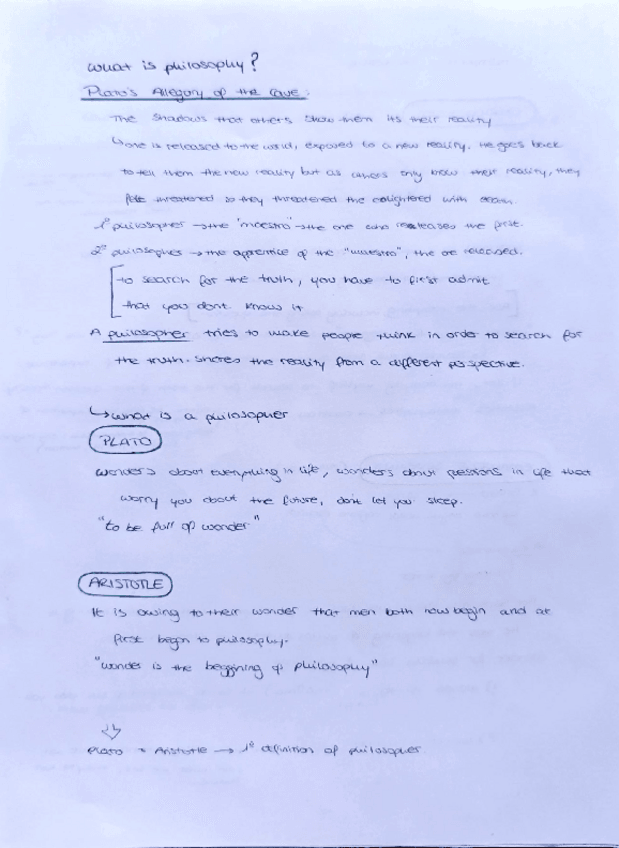 what is philosophy?
Plato's Allegory of the cave:
The shadows that others show them its their reality
↳ one is released to the world, exposed to a new reality. He goes back
to tell them the new reality but as others only know their reality, they
felt threatened so they threatened the enlightened with death.
1º philosopher → the "maestro" → the one who releases the first.
2º philosopher → the apprentice of the "maestro", the one released.
to search for the truth, you have to first admit
that you dont know it
A philosopher tries to make people think in order to search for
the truth. Shores the reality from a different perspective.
↳ what is a philosopher
PLATO
wonders about everything in life, wonders about questions in life that
worry you about the future, dont let you sleep.
"to be full of wonder"
ARISTOTLE
It is owing to their wonder that men both now begin and at
first began to philosophy.
"wonder is the beggining of philosophy"
Plato + Aristotle → 1º definition of philosopher